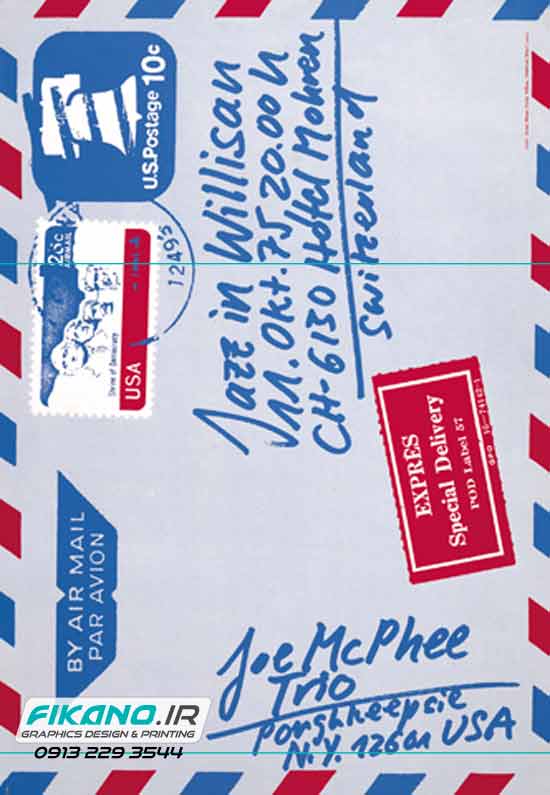 U.S.Postage 10c
26c
AIRMAIL
Shrine of Democracy
USA
12495
Jazz in Willisau
11. Okt. 75 20.00 h
CH-6130 Hotel Mohren
Switzerland
EXPRES
Special Delivery
POD Label 57
GPO 16-74162-1
BY AIR MAIL
PAR AVION
Joe McPhee
Trio
Poughkeepsie
N.Y. 12601 USA
FIKANO.IR
GRAPHICS DESIGN & PRINTING
0913 229 3544